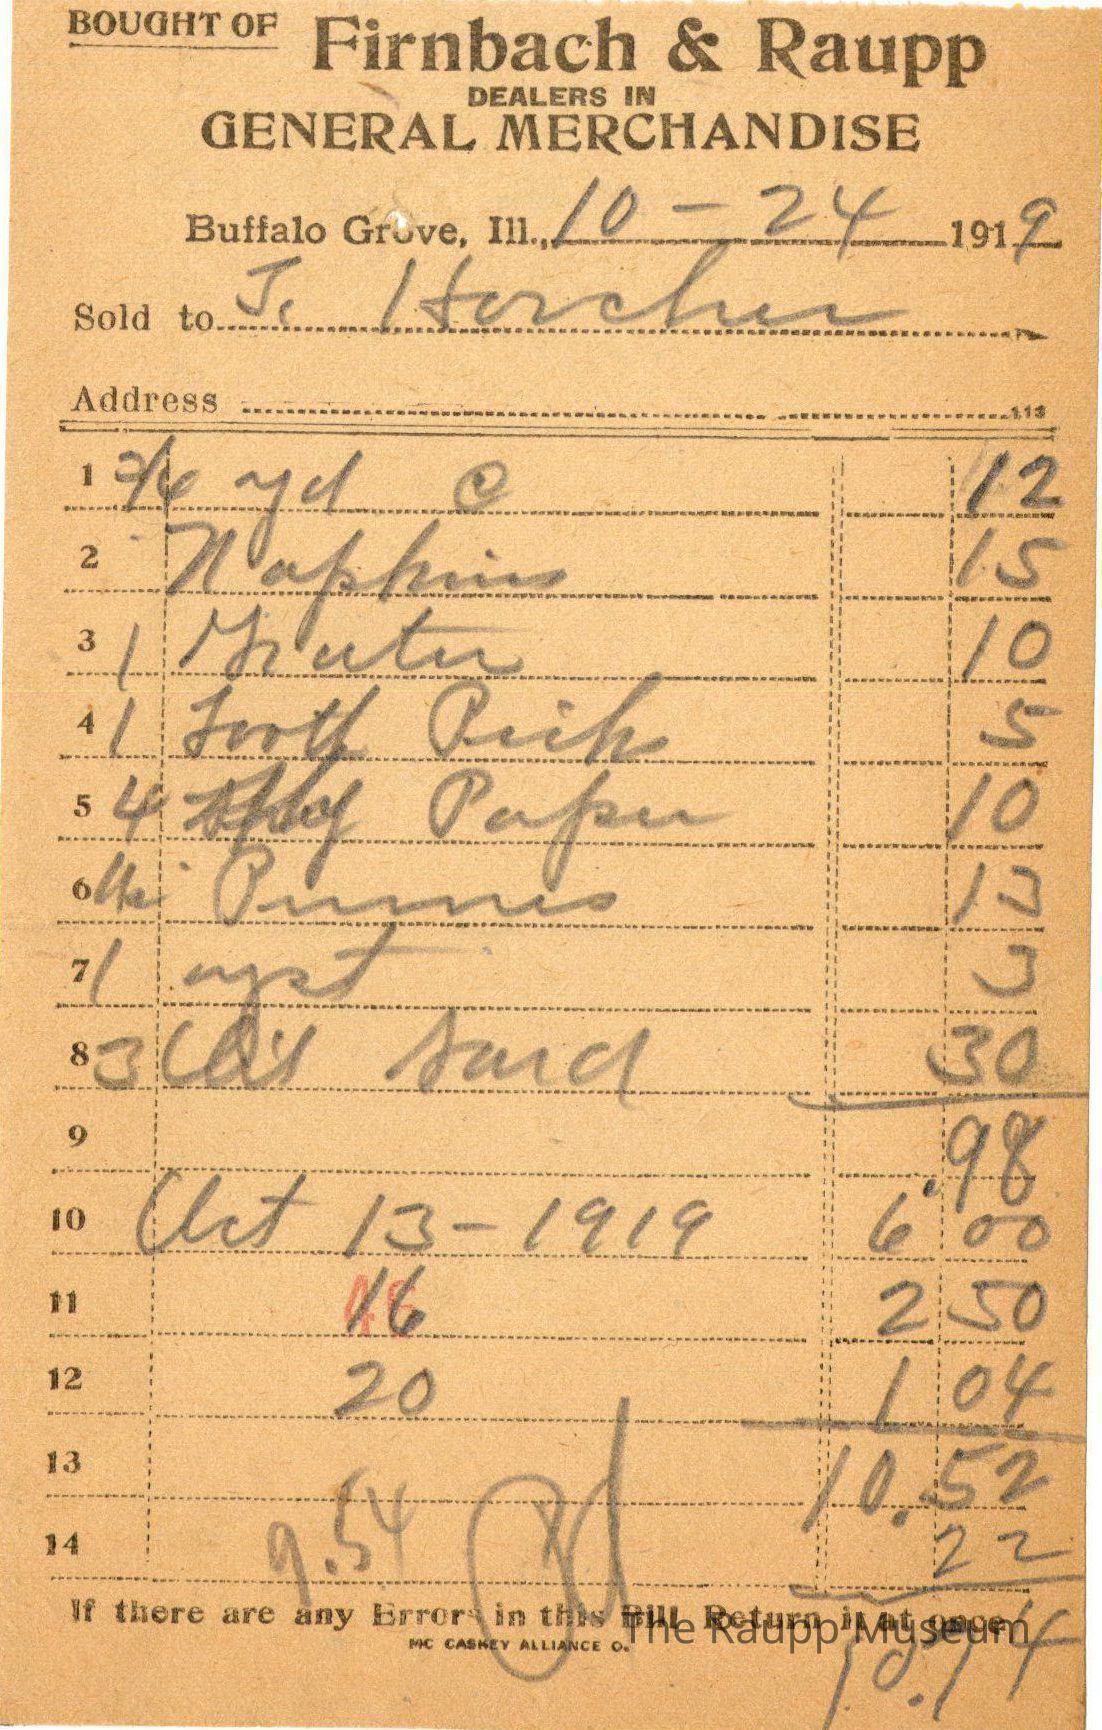 BOUGHT OF Firnbach & Raupp
DEALERS IN
GENERAL MERCHANDISE
Buffalo Grove, Ill., 10 - 24 1919
Sold to J. Horcher
Address 113
1 yd @ 12
2 Napkins 15
3 1 10
4 1 Tooth Pick 5
5 4 Fly Paper 10
6 Prunes 13
7 1 yst 3
8 3 Oil Sard 30
9 .98
10 Oct 13 - 1919 6 00
11 46 16 2 50
12 20 1 04
13 10.52
14 9.54 22
If there are any Errors in this Bill Return it at once
MC CASKEY ALLIANCE O.
The Raupp Museum
10.74